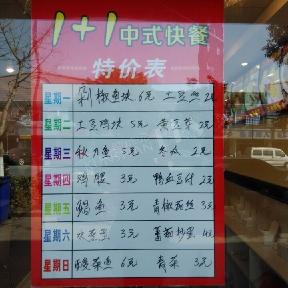 1+1中式快餐
特价表
星期一 剁椒鱼块 6元 土豆丝 2元
星期二 土豆鸡块 5元 2元
星期三 秋刀鱼 5元 冬瓜 2元
星期四 鸡腿 3元 鸭血豆付 2元
星期五 鲳鱼 3元 青椒 3元
星期六 3元 番茄炒蛋
星期日 酸菜鱼 6元 青菜 3元